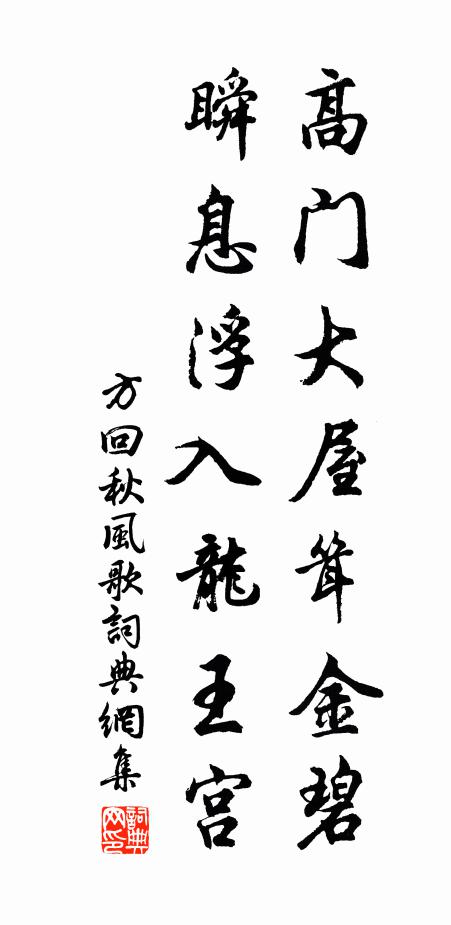 高门大屋耸金碧
瞬息浮入龍王宫
方回秋風歌詞典網集
詞典网印